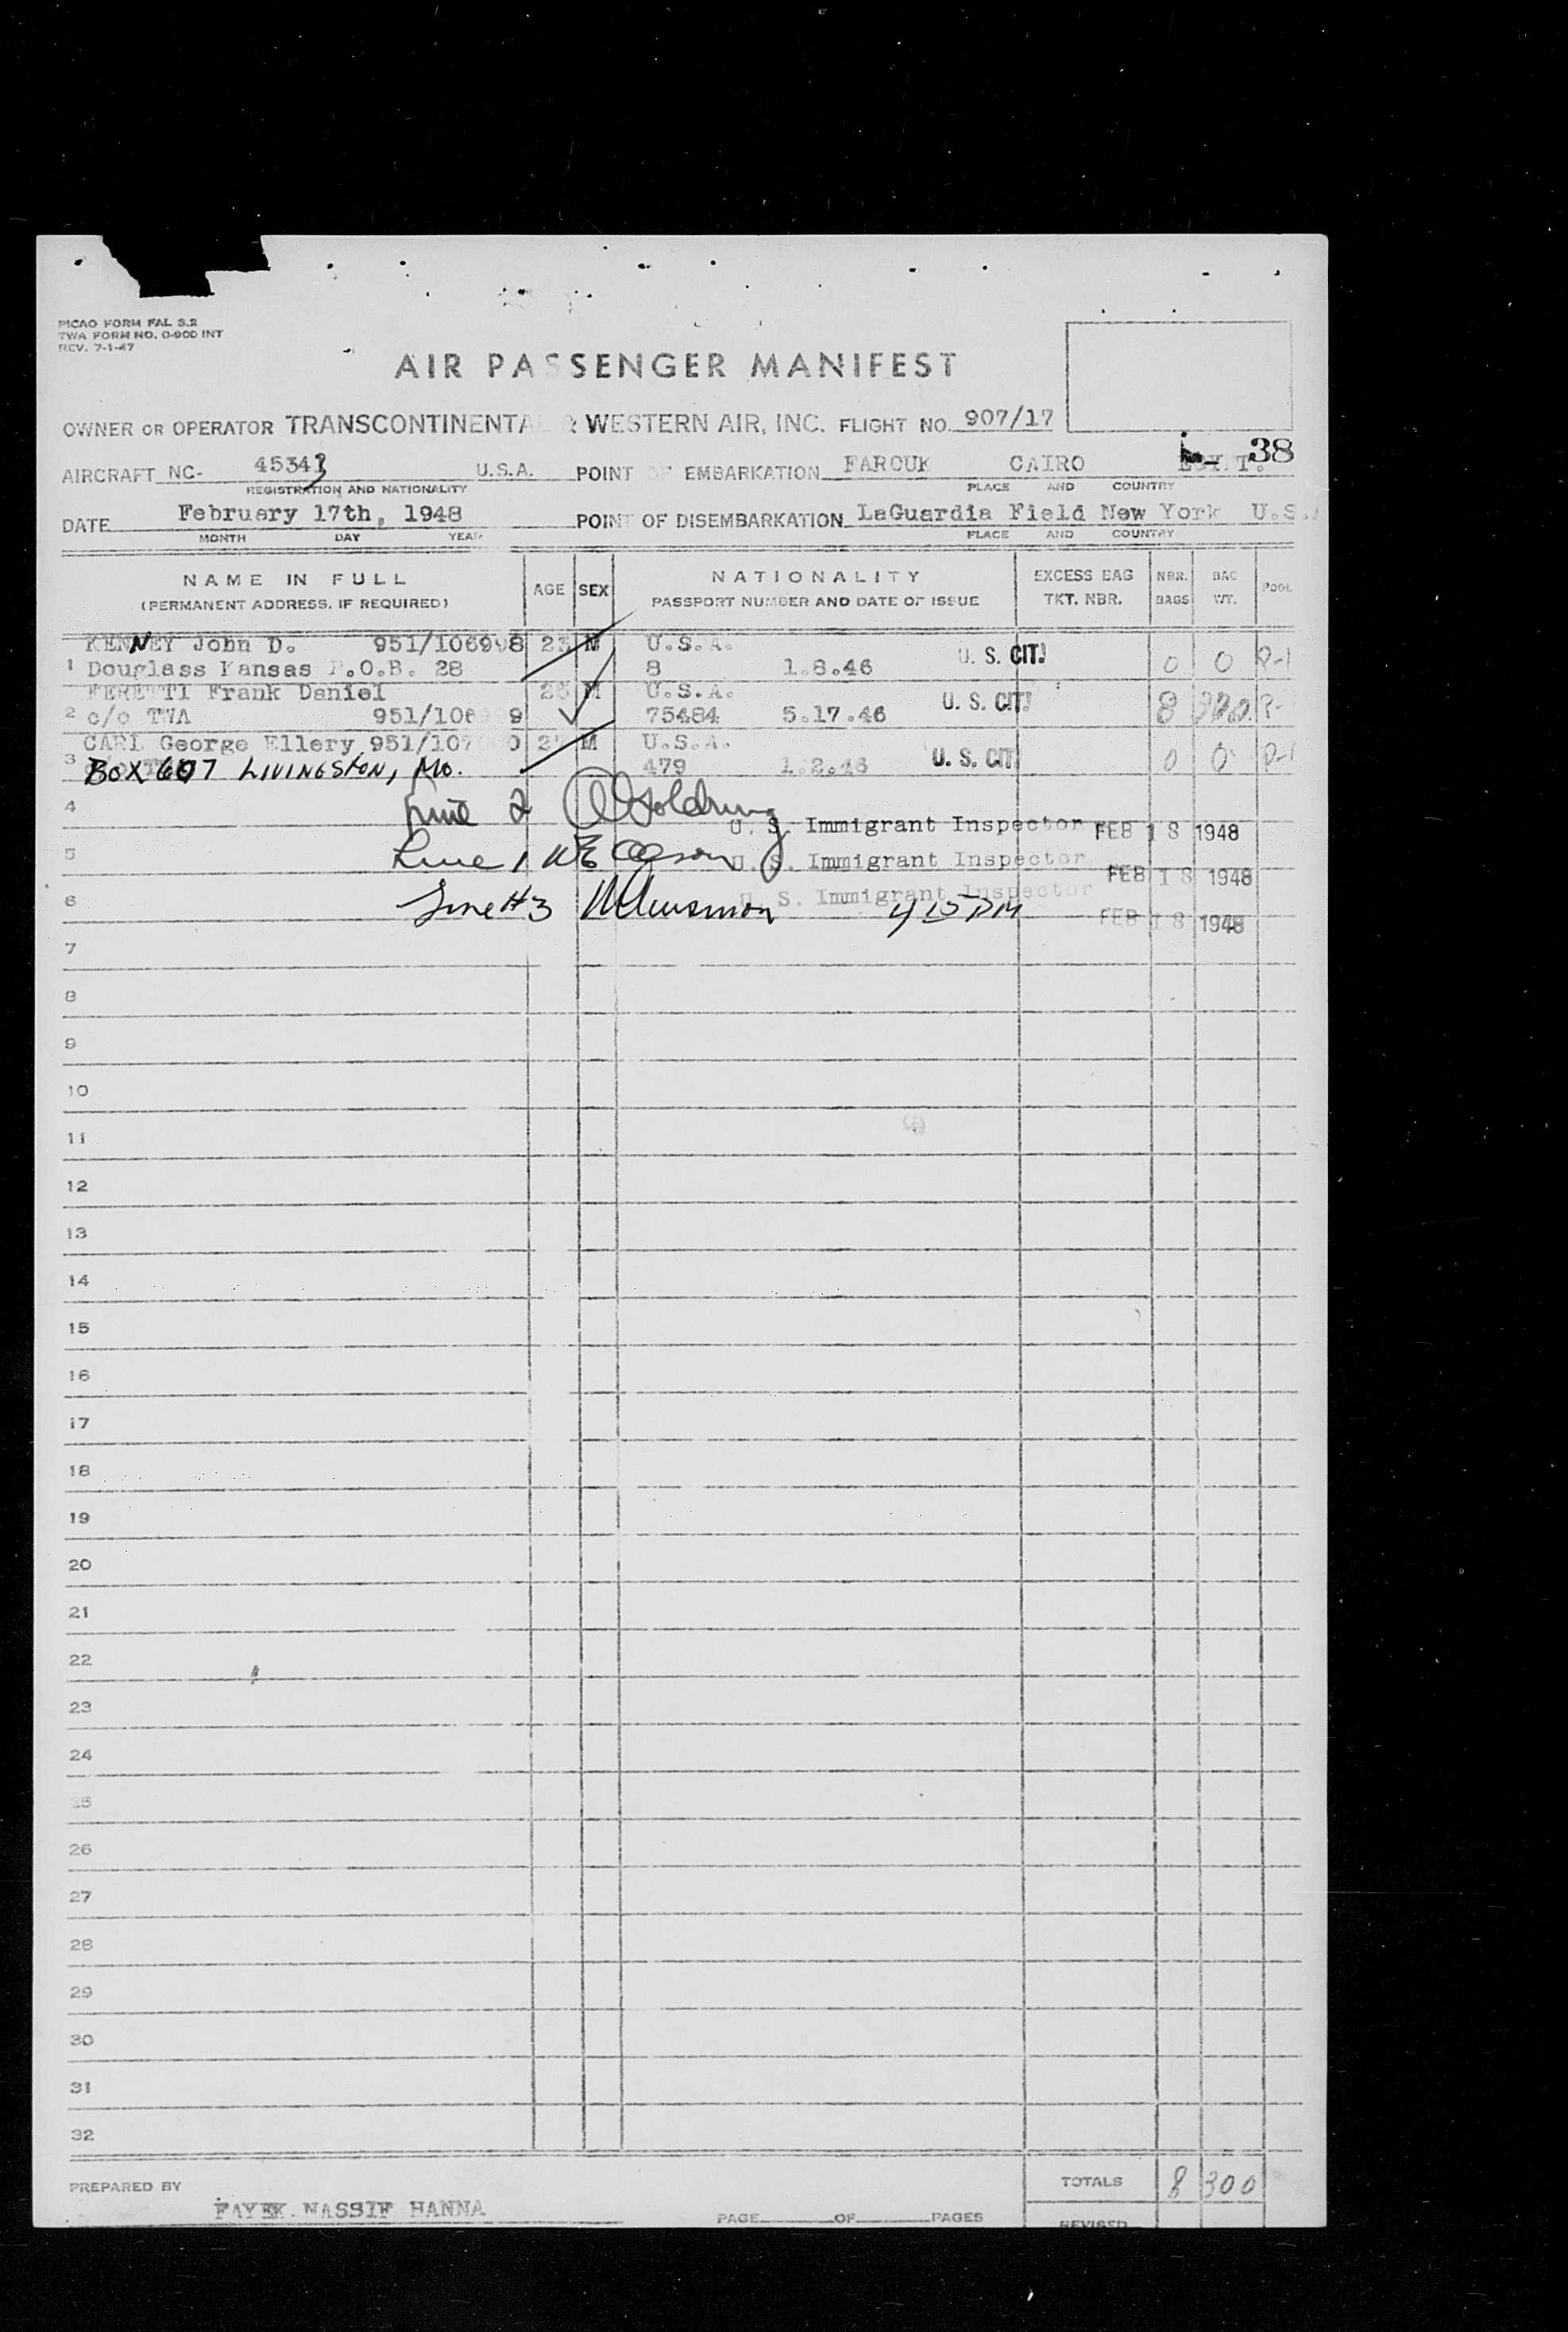 PICAO FORM FAL S.2
TWA FORM NO. 0-900 INT
REV. 7-1-47
AIR PASSENGER MANIFEST
OWNER OR OPERATOR TRANSCONTINENTAL & WESTERN AIR, INC. FLIGHT NO. 907/17
38
AIRCRAFT NC- 45343 U.S.A. POINT OF EMBARKATION FAROUK CAIRO EGY.T.
REGISTRATION AND NATIONALITY PLACE AND COUNTRY
DATE February 17th, 1948 POINT OF DISEMBARKATION LaGuardia Field New York U.S.
MONTH DAY YEAR PLACE AND COUNTRY
NAME IN FULL AGE SEX NATIONALITY EXCESS BAG NBR. BAG POOL
(PERMANENT ADDRESS, IF REQUIRED) PASSPORT NUMBER AND DATE OF ISSUE TKT. NBR. BAGS WT.
KENNEY John D. 951/106998 23 M U.S.A.
1 Douglass Kansas P.O.B. 28 8 1.8.46 U. S. CIT. 0 0 P-1
FERETTI Frank Daniel 26 M U.S.A.
2 c/o TWA 951/106 9 75484 5.17.46 U. S. CIT. 8 P-
CARL George Ellery 951/107 0 M U.S.A.
3 BOX 607 LIVINGSTON, MO. 479 1.2.46 U. S. CIT. 0 0 P-1
4 Line 2 Goldring U. S. Immigrant Inspector FEB 18 1948
5 Line 1 U. S. Immigrant Inspector FEB 18 1948
6 Line #3 U. S. Immigrant Inspector 4 15 PM FEB 18 1948
7
8
9
10
11
12
13
14
15
16
17
18
19
20
21
22
23
24
25
26
27
28
29
30
31
32
PREPARED BY FAYEK NASSIF HANNA TOTALS 8 300
PAGE OF PAGES REVISED